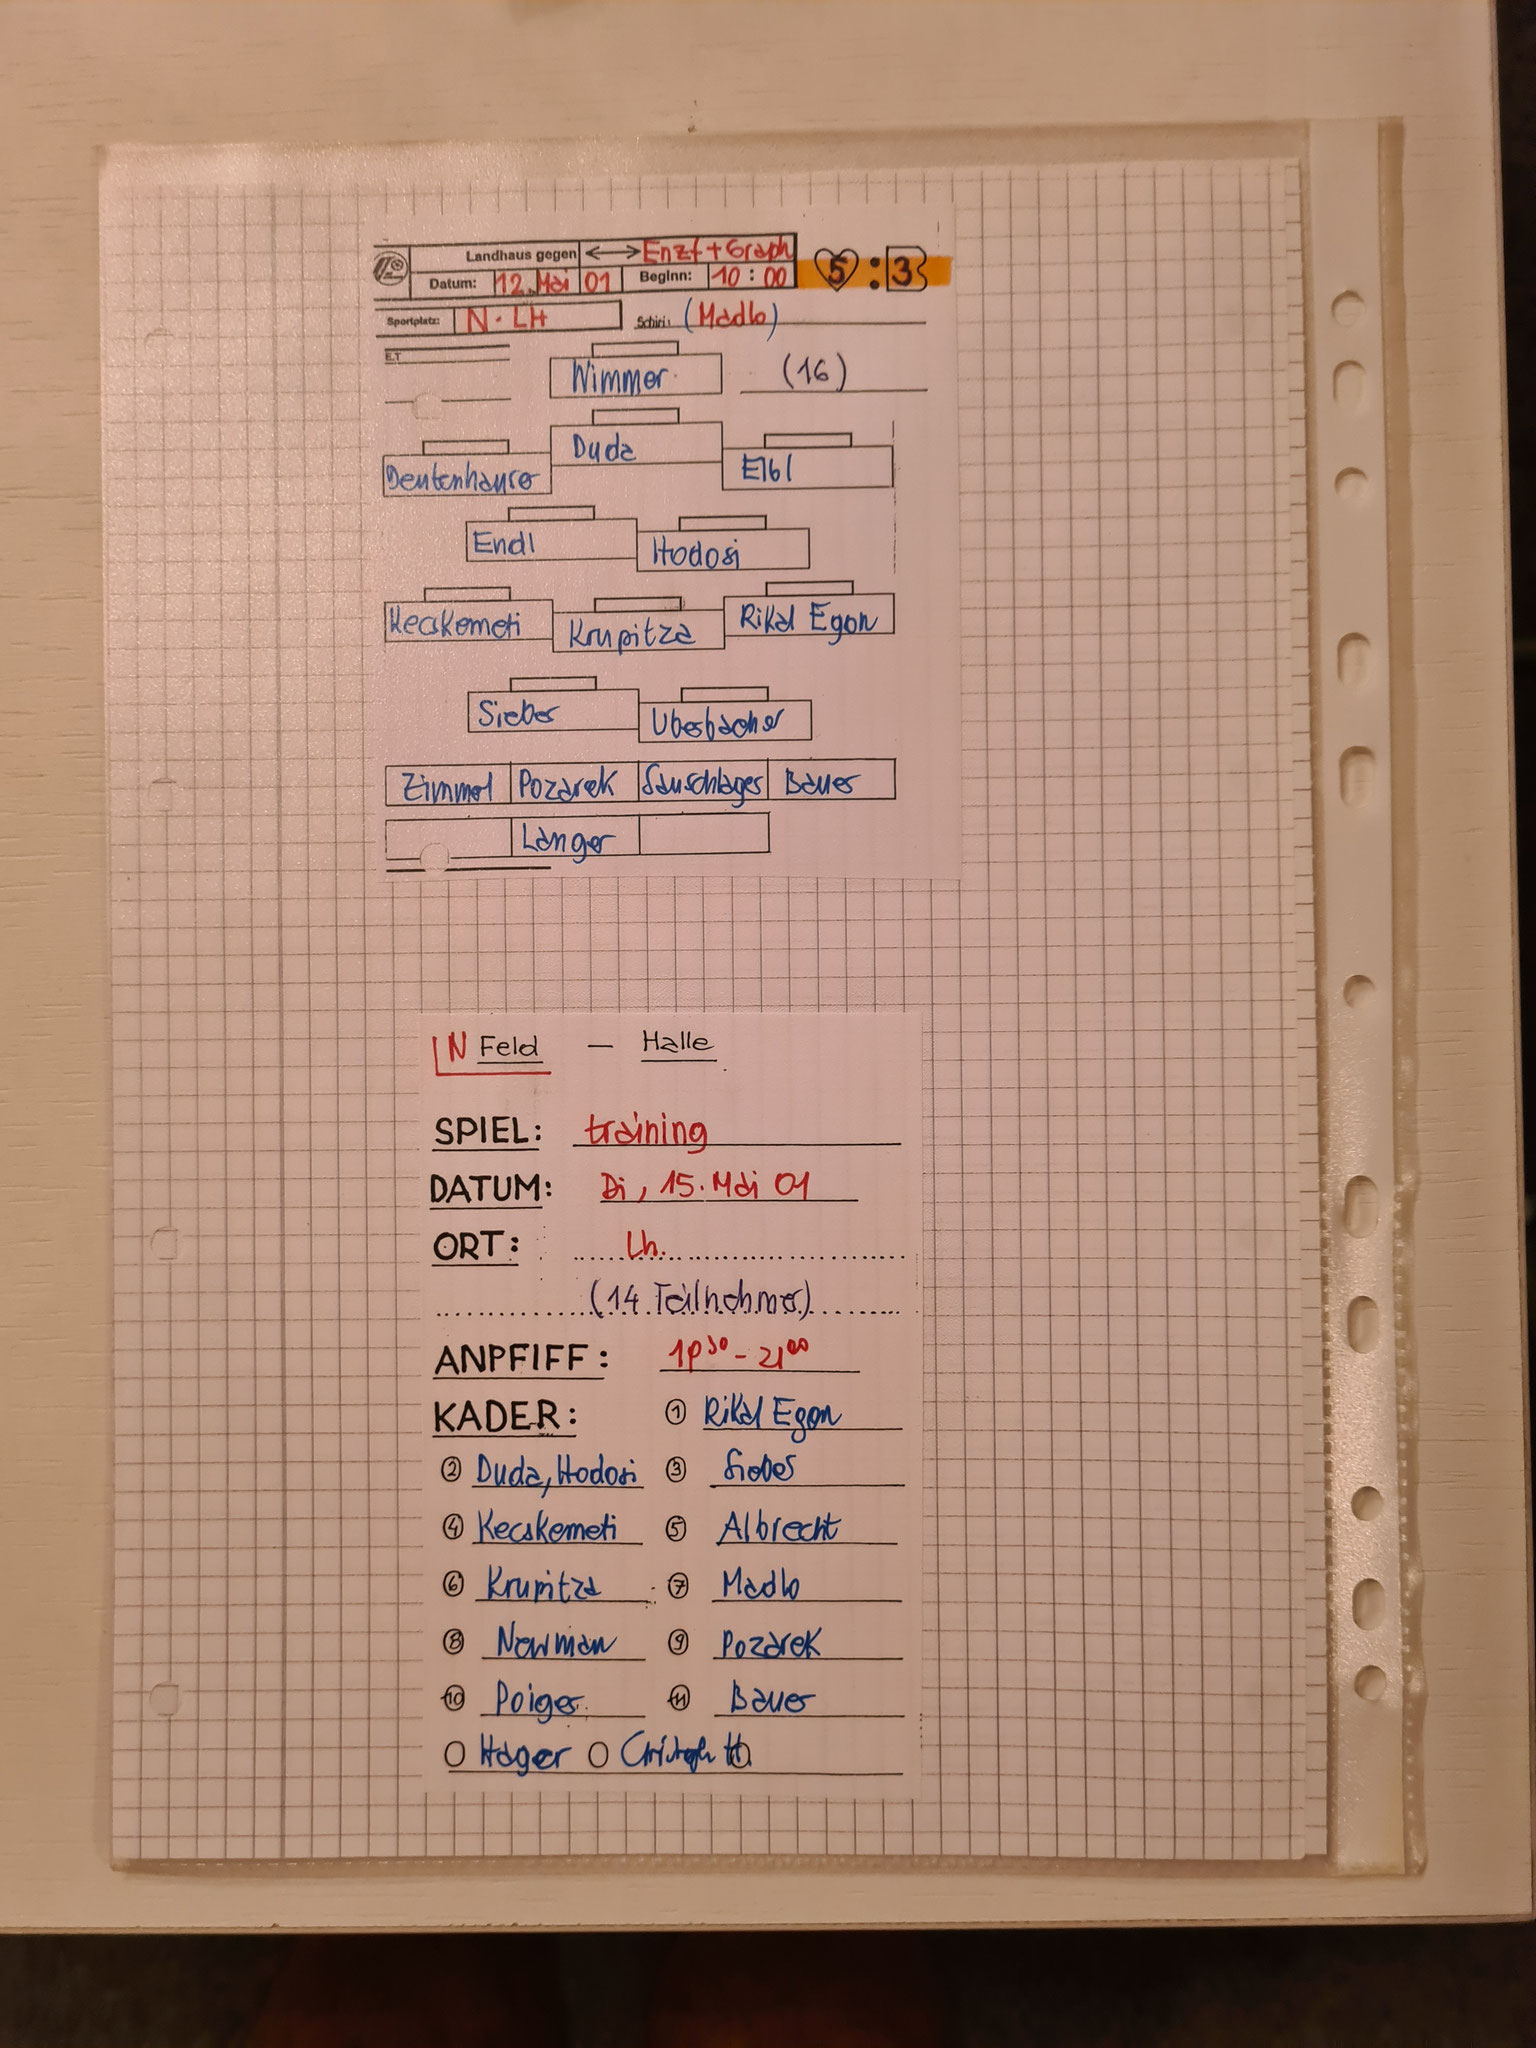 Landhaus gegen ⟷ Enzf + Graph
5 : 3
Datum: 12. Mai 01 Beginn: 10 : 00
Sportplatz: N. LH Schiri: (Madlo)
E.T
Wimmer (16)
Duda
Deutenhauser Elbl
Endl Hodosi
Kecskemeti Krupitza Rikal Egon
Sieber Übesbacher
Zimmel Pozarek Sauschlager Bauer
Langer
N Feld — Halle
SPIEL: training
DATUM: Di, 15. Mai 01
ORT: Lh.
(14 Teilnehmer)
ANPFIFF: 19³⁰ - 21⁰⁰
KADER: ① Rikal Egon
② Duda, Hodosi ③ Sieber
④ Kecskemeti ⑤ Albrecht
⑥ Krupitza ⑦ Madlo
⑧ Newman ⑨ Pozarek
⑩ Poiger ⑪ Bauer
Hager Christoph H.